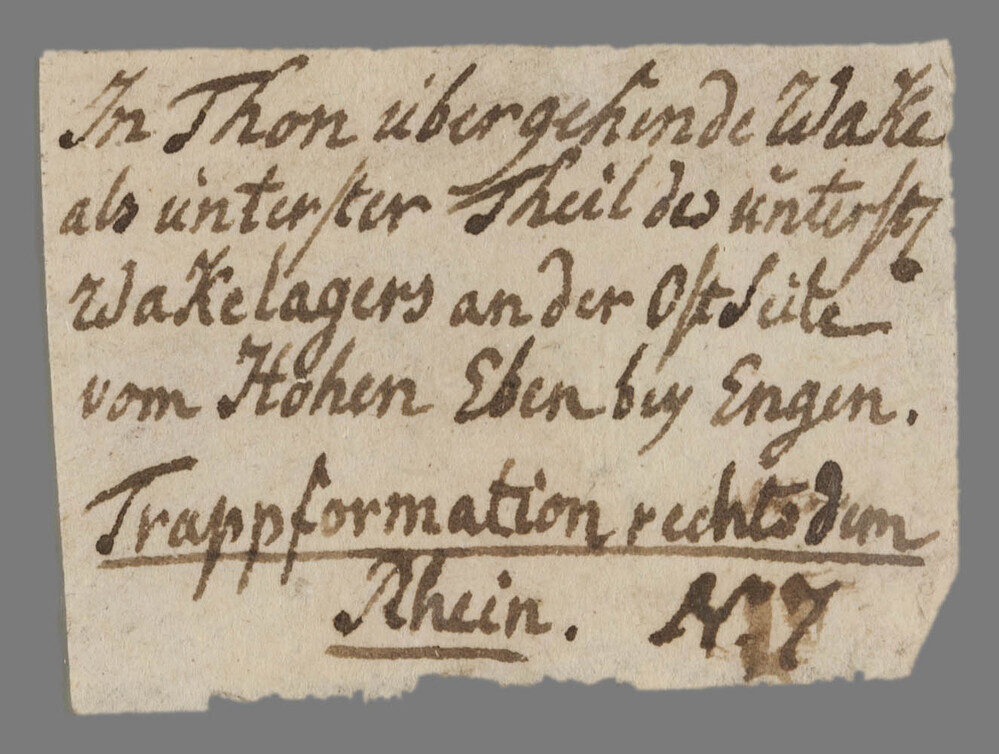 In Thon übergehende Wake
als unterster Theil des unterst
Wakelagers an der Ostseite
vom Hohen Eben bey Engen.
Trappformation rechts dem
Rhein. N. 7